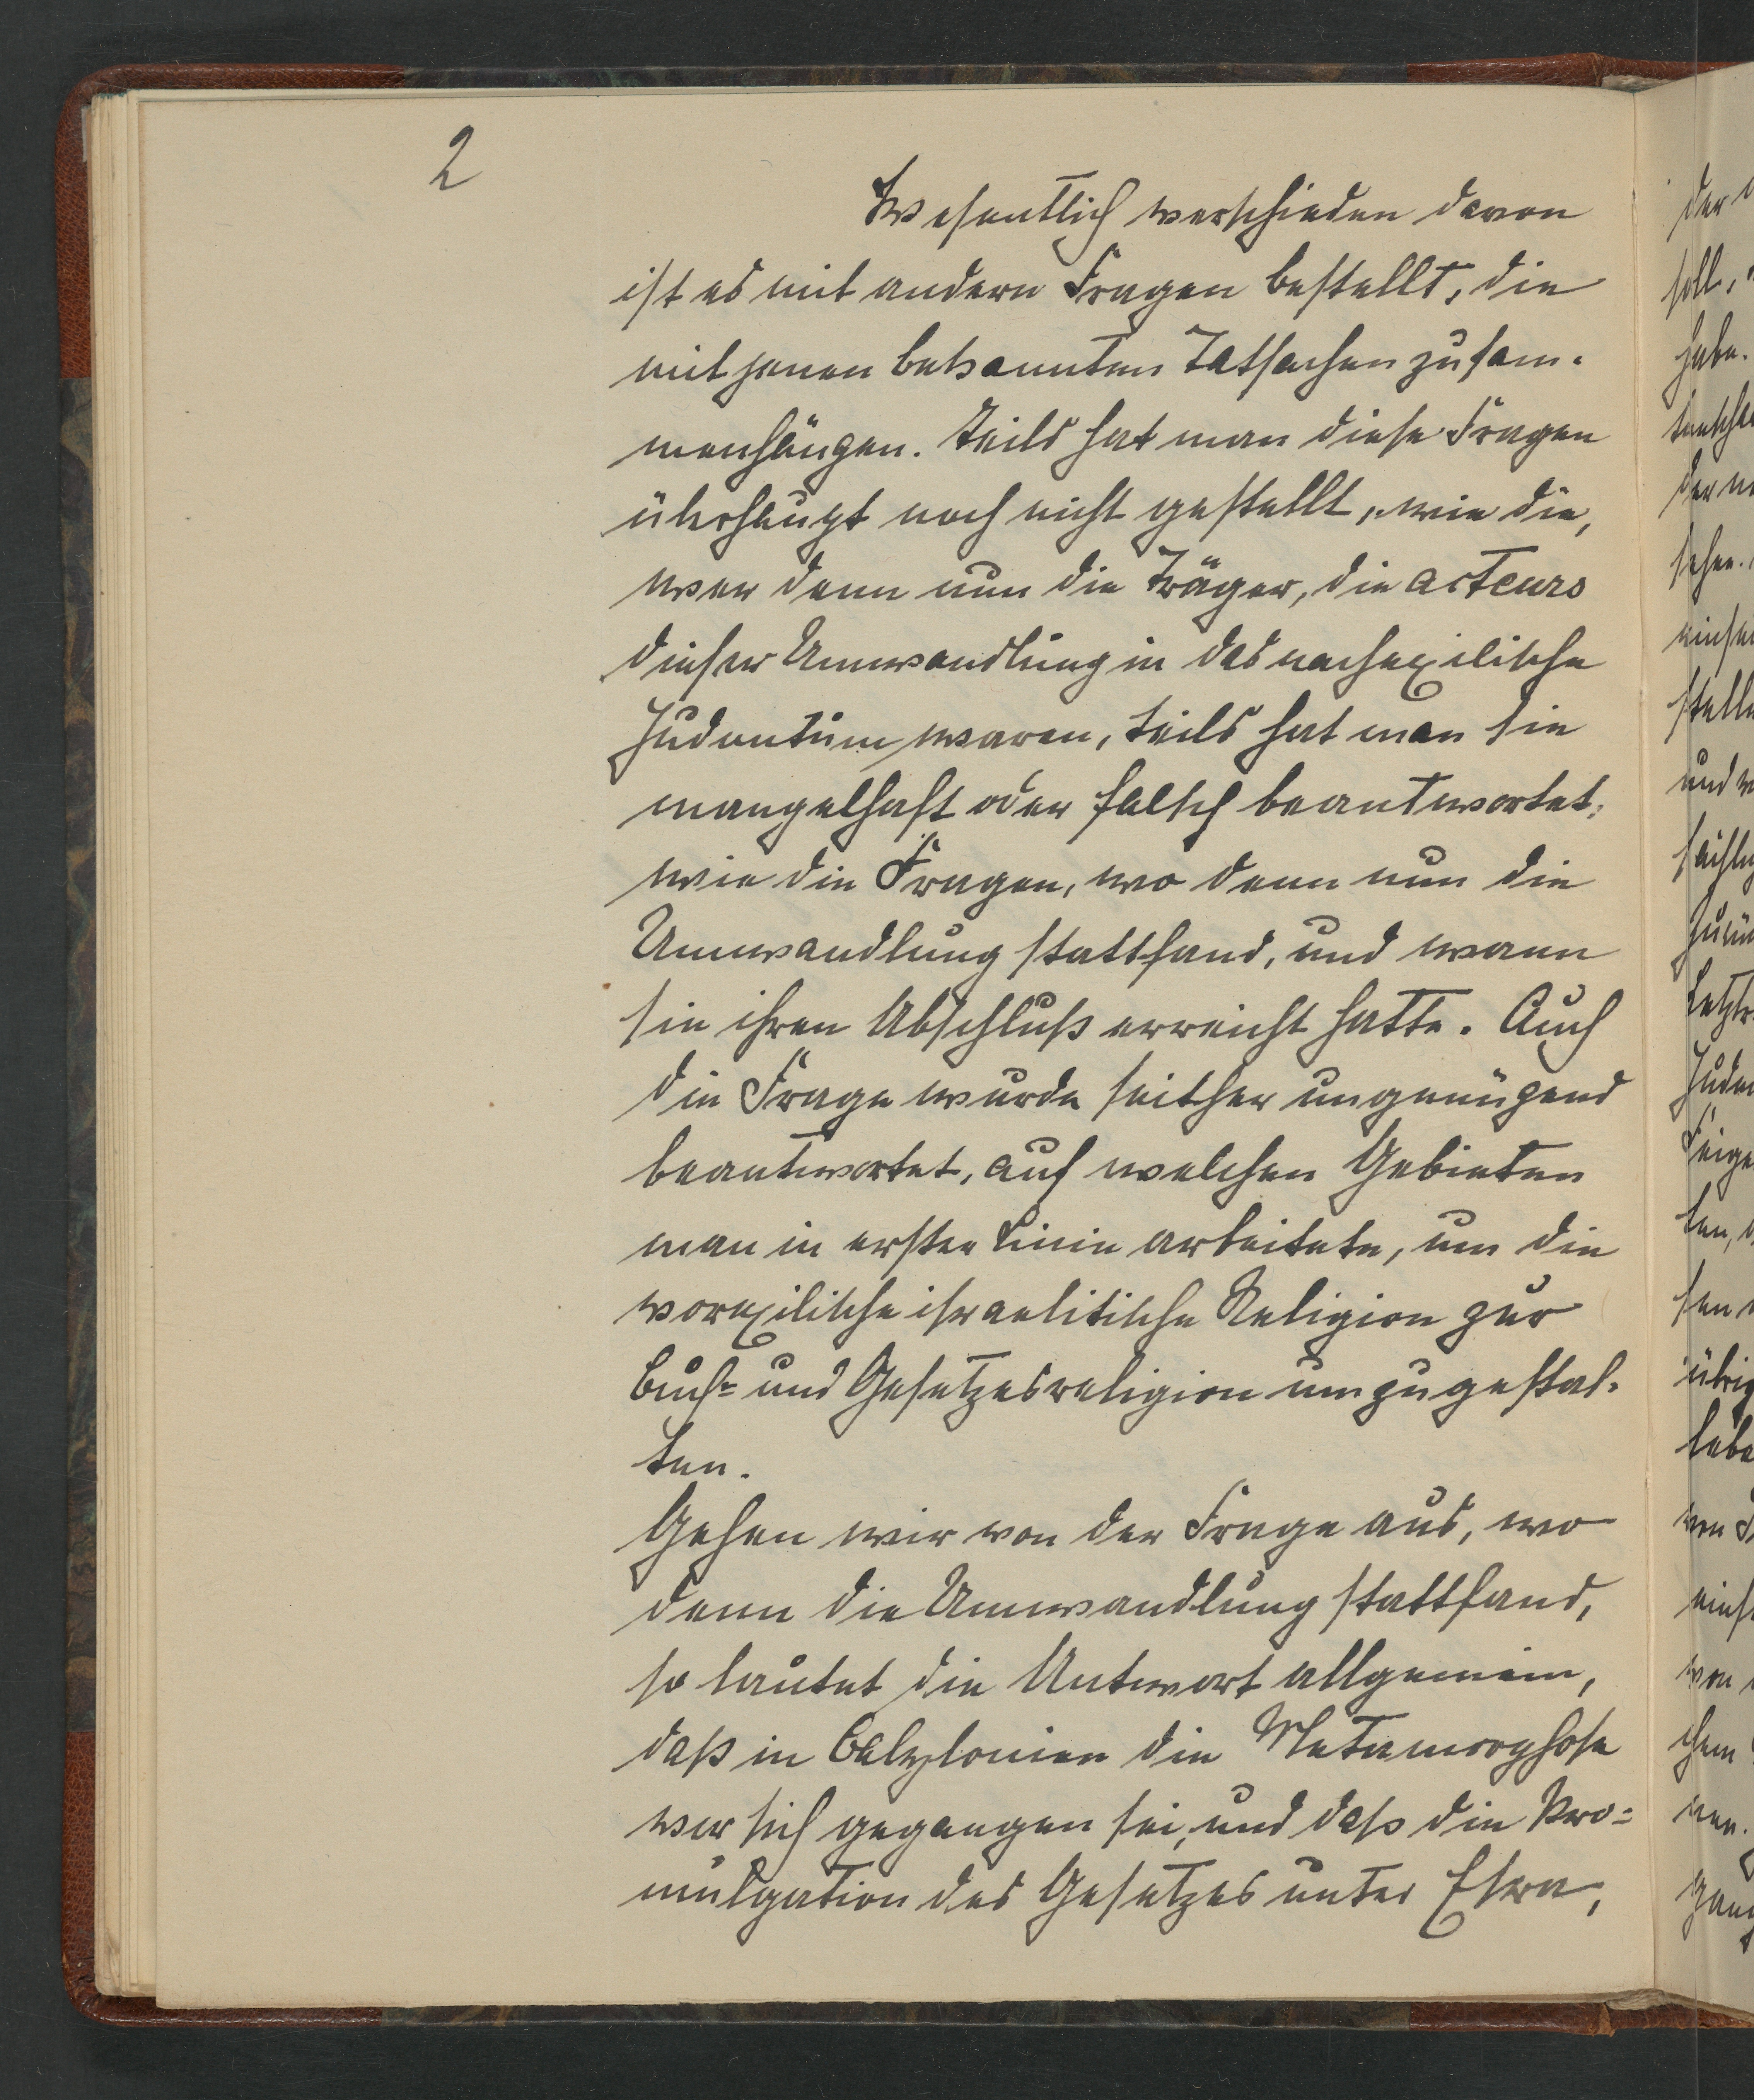 2
Wesentlich verschieden davon
ist es mit andern Fragen bestellt, die
mit jenen bekannten Tatsachen zusam-
menhängen. Teils hat man diese Fragen
überhaupt noch nicht gestellt, wie die,
wer denn nun die Träger, die acteurs
dieser Umwandlung in das nachexilische
Judentum waren, teils hat man sie
mangelhaft oder falsch beantwortet,
wie die Fragen, wo denn nun die
Umwandlung stattfand, und wann
sie ihren Abschluß erreicht hatte. Auch
die Frage wurde seither ungenügend
beantwortet, auf welchen Gebieten
man in erster Linie arbeitete, um die
vorexilische israelitische Religion zur
Buch- und Gesetzesreligion umzugestal-
ten.
Gehen wir von der Frage aus, wo
denn die Umwandlung stattfand,
so lautet die Antwort allgemein,
daß in Babylonien die Metamorphose
vor sich gegangen sei, und daß die Pro-
mulgation des Gesetzes unter Esra,
der
soll,
habe.
der
sehen.
und
Letzte